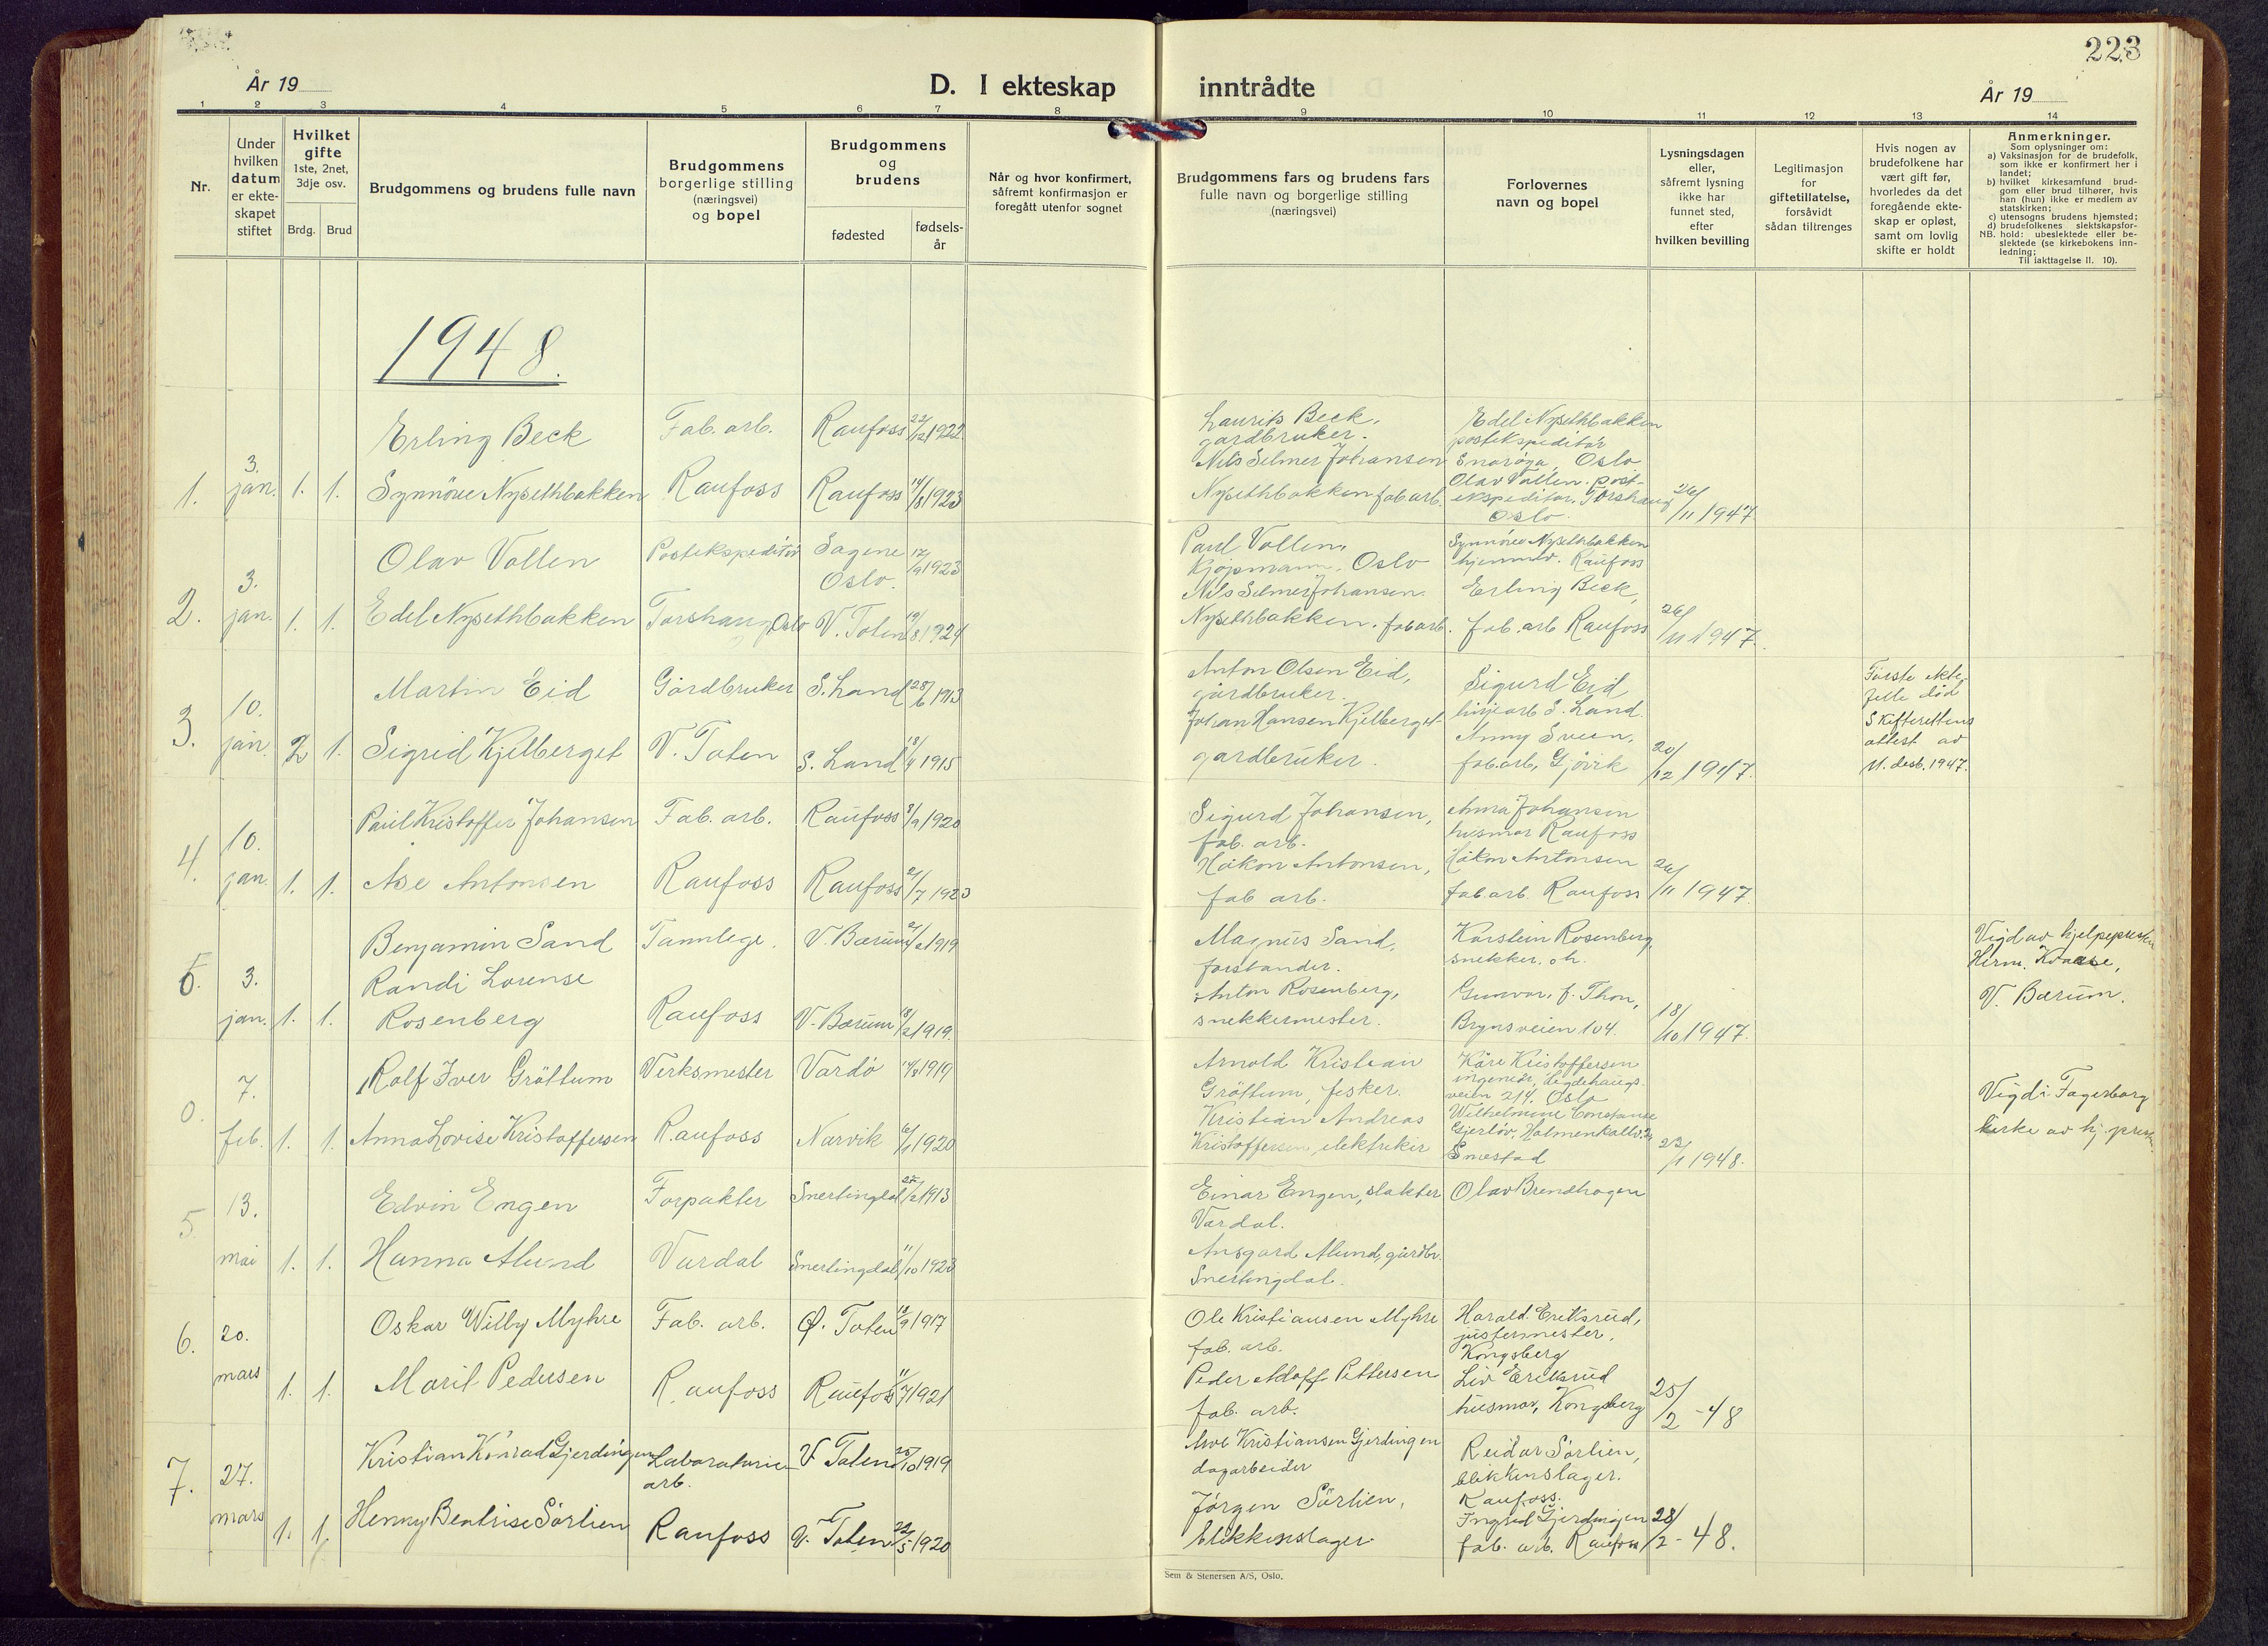 223
År 19
D. I ekteskap inntrådte
År 19
1 2 3 4 5 6 7 8 9 10 11 12 13 14
Nr.
Under hvilken datum er ekte-skapet stiftet
Hvilket gifte
1ste, 2net, 3dje osv.
Brdg. Brud
Brudgommens og brudens fulle navn
Brudgommens borgerlige stilling (næringsvei) og bopel
Brudgommens og brudens
fødested
fødsels-år
Når og hvor konfirmert, såfremt konfirmasjon er foregått utenfor sognet
Brudgommens fars og brudens fars fulle navn og borgerlige stilling (næringsvei)
Forlovernes navn og bopel
Lysningsdagen eller, såfremt lysning ikke har funnet sted, efter hvilken bevilling
Legitimasjon for giftetillatelse, forsåvidt sådan tiltrenges
Hvis nogen av brudefolkene har vært gift før, hvorledes da det foregående ekte-skap er opløst, samt om lovlig skifte er holdt
Anmerkninger.
Som oplysninger om:
a) Vaksinasjon for de brudefolk, som ikke er konfirmert her i landet;
b) hvilket kirkesamfund brud-gom eller brud tilhører, hvis han (hun) ikke er medlem av statskirken;
c) utensogns brudens hjemsted;
d) brudefolkenes slektskapsfor-
NB. hold: ubeslektede eller be-slektede (se kirkebokens inn-ledning;
Til iakttagelse II. 10).
1948.
1. 3. jan. 1. 1.
Erling Beck
Synnöve Nysethbakken
Fab. arb.
Raufoss
Raufoss 22/12 1922
Raufoss 14/8 1923
Laurits Beck,
gardbruker.
Nils Selmer Johansen
Nysethbakken fab arb.
Edel Nysethbakken
postekspeditör
Snaröya, Oslo
Olav Vollen. post-
ekspeditör. Torshaug
Oslo.
26/11 1947
2. 3. jan. 1. 1.
Olav Vollen
Edel Nysethbakken
Postekspeditör
Torshaug Oslo
Sagene Oslo. 17/9 1923
V. Toten 19/8 1924
Paul Vollen,
Kjøpmann, Oslo
Nils Selmer Johansen.
Nysethbakken. fabarb.
Synnöve Nysethbakken
hjemmev. Raufoss
Erling Beck,
fab. arb Raufoss
26/11 1947.
3. 10. jan 2 1.
Martin Eid
Sigrid Kjelberget
Gårdbruker
V. Toten
S. Land 28/6 1913
S. Land 1915
Anton Olsen Eid,
gårdbruker.
Johan Hansen Kjelberget
gardbruker.
Sigurd Eid
linjearb S. Land.
Anny Sveen,
fabarb, Gjövik
20/12 1947.
Förste ekte-
felle död
Skifterettens
attest av
11. desb. 1947.
4. 10. jan. 1. 1.
Paul Kristoffer Johansen
Åse Antonsen
Fab. arb.
Raufoss
Raufoss 8/9 1920
Raufoss 21/7 1923
Sigurd Johansen,
fab. arb.
Håkon Antonsen,
fab arb.
Anna Johansen
husmor Raufoss
Håkon Antonsen
fab.arb. Raufoss
26/11 1947.
5. 3. jan. 1. 1.
Benjamin Sand
Randi Lorense
Rosenberg
Tannlege.
Raufoss
V. Bærum 1919
V. Bærum 18/2 1919.
Magnus Sand,
forstander.
Anton Rosenberg,
snekkermester.
Karstein Rosenberg,
snekker. oh.
Gunvor, f. Thon,
Brynsveien 104.
18/10 1947.
Vigd av hjelpeprest
Herm.
V. Bærum.
0. 7. feb. 1. 1.
Rolf Iver Gröttum
Anna Lovise Kristoffersen
Verksmester
Raufoss
Vardö 1919
Narvik 6/1 1920
Arnold Kristian
Gröttum, fisker.
Kristian Andreas
Kristoffersen, elektriker
Kåre Kristoffersen
ingeniör,
veien 214. Oslo
Wilhelmine Constance
Gjerlöv, Holmenkollv.
Smestad
23/1 1948.
Vigd i Fagerborg
kirke av hj. prest.
5 13. mai 1. 1.
Edvin Engen
Hanna Ålund
Forpakter
Vardal
Snertingdal 1913
Snertingdal 11/10 1923
Einar Engen, slakter
Vardal.
Ansgard Ålund, gårdbr.
Snertingdal.
Olav Brendhagen
6. 20. mars 1. 1.
Oskar Willy Myhre
Marit Pedersen
Fab. arb.
Raufoss
Ø. Toten 18/9 1917
Raufoss 11/7 1921
Ole Kristiansen Myhre
fab. arb.
Peder Adolf Pettersen
fab. arb.
Harald Eriksrud,
justermester,
Kongsberg
Liv Eriksrud
husmor, Kongsberg
25/2 -48
7. 27. mars 1. 1.
Kristian Konrad Gjerdingen
Henny Beatrise Sörlien
Laboratorie-
arb.
Raufoss
V Toten 25/10 1919
V. Toten 22/5 1920
Kristiansen Gjerdingen
dagarbeider
Jörgen Sörlien,
blikkenslager.
Reidar Sörlien,
blikkenslager.
Raufoss.
Ingrid Gjerdingen
fab. arb. Raufoss
28/2 - 48.
Sem & Stenersen A/S, Oslo.